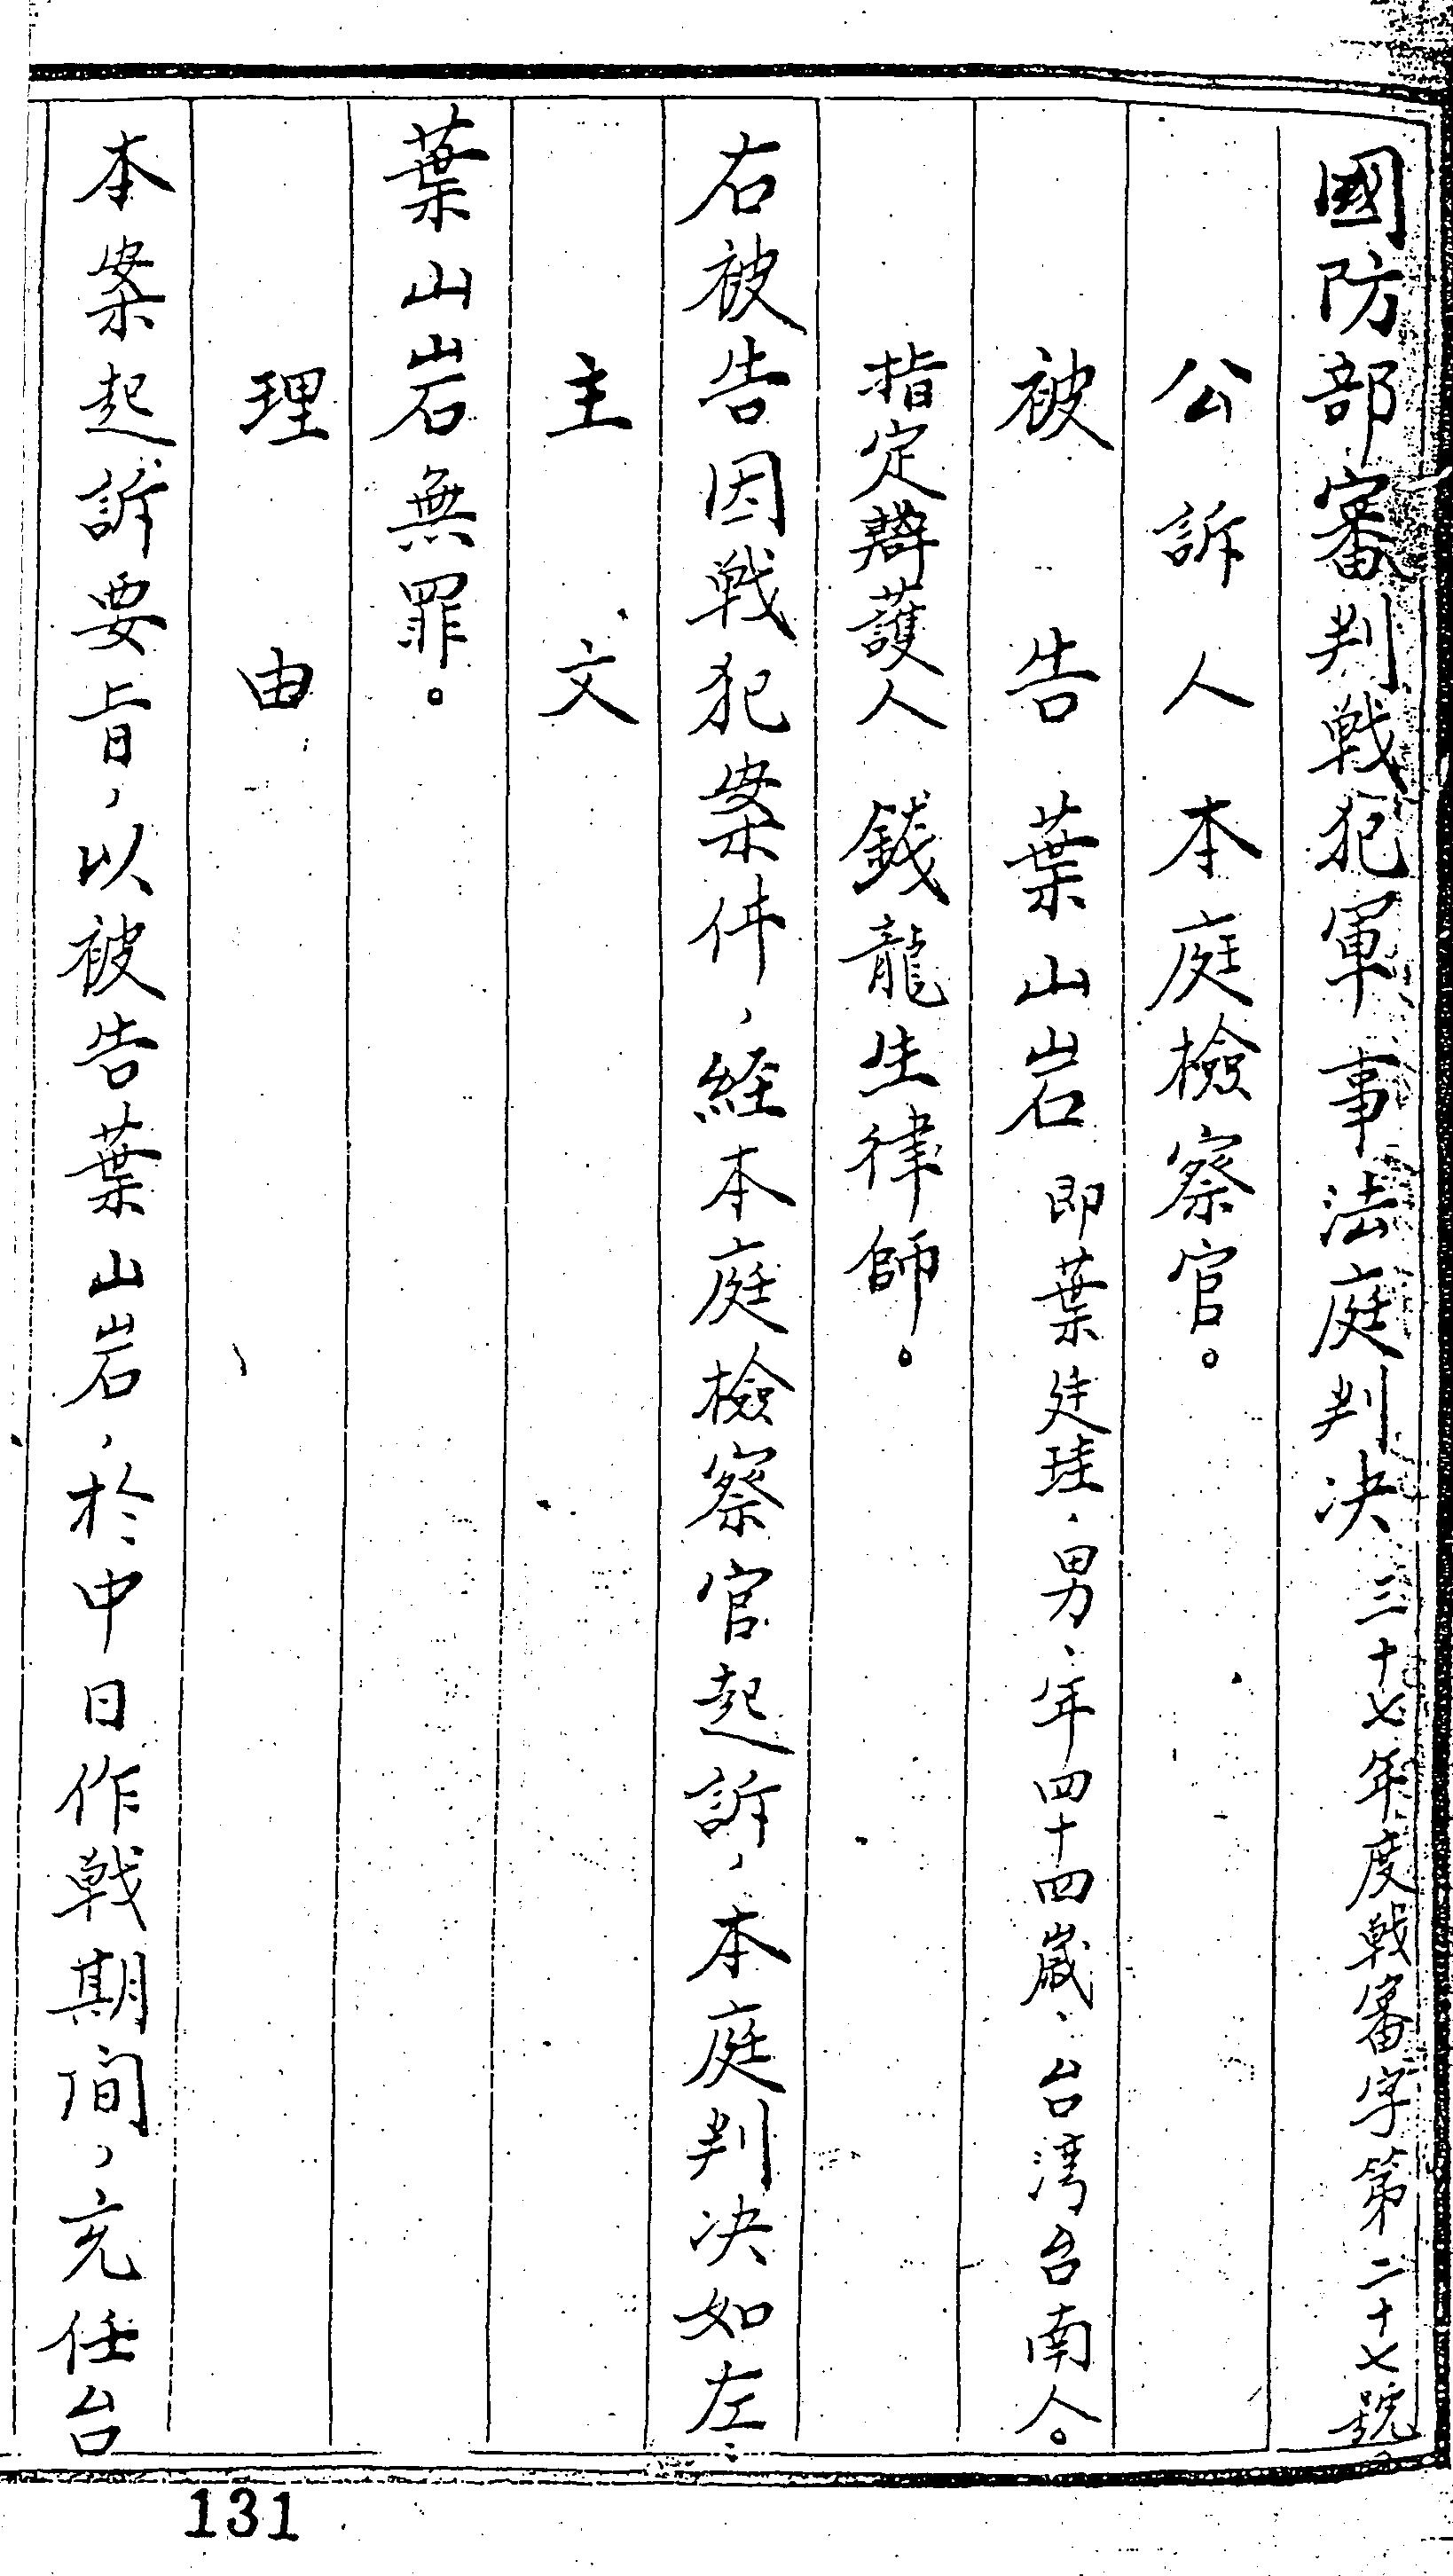 國防部審判戰犯軍事法庭判决 三十七年度戰審字第二十七號
公訴人 本庭檢察官。
被告 葉山岩 即葉廷珪，男、年四十四歲、台湾台南人。
指定辯護人 錢龍生律師。
右被告因戰犯案件，経本庭檢察官起訴，本庭判决如左：
主文
葉山岩無罪。
理由
本案起訴要旨，以被告葉山岩，於中日作戰期間，充任台
131